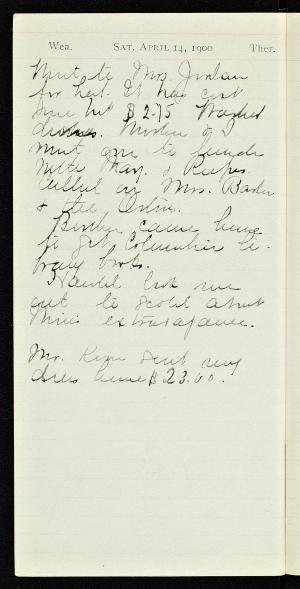 Wea. SAT. APRIL 14, 1900 Ther.
Went to Mrs. Jordan
for hat. It has cost
me but $2.75 Washed
dishes. Mother & I
went over to
with Mary &
Called on Mrs. Baxter
& the
Birdie came home
to get Columbia li-
brary books.
Harold took me
out to scold about
Mimi's extravagance.
Mr. King sent my
dress home $23.00.